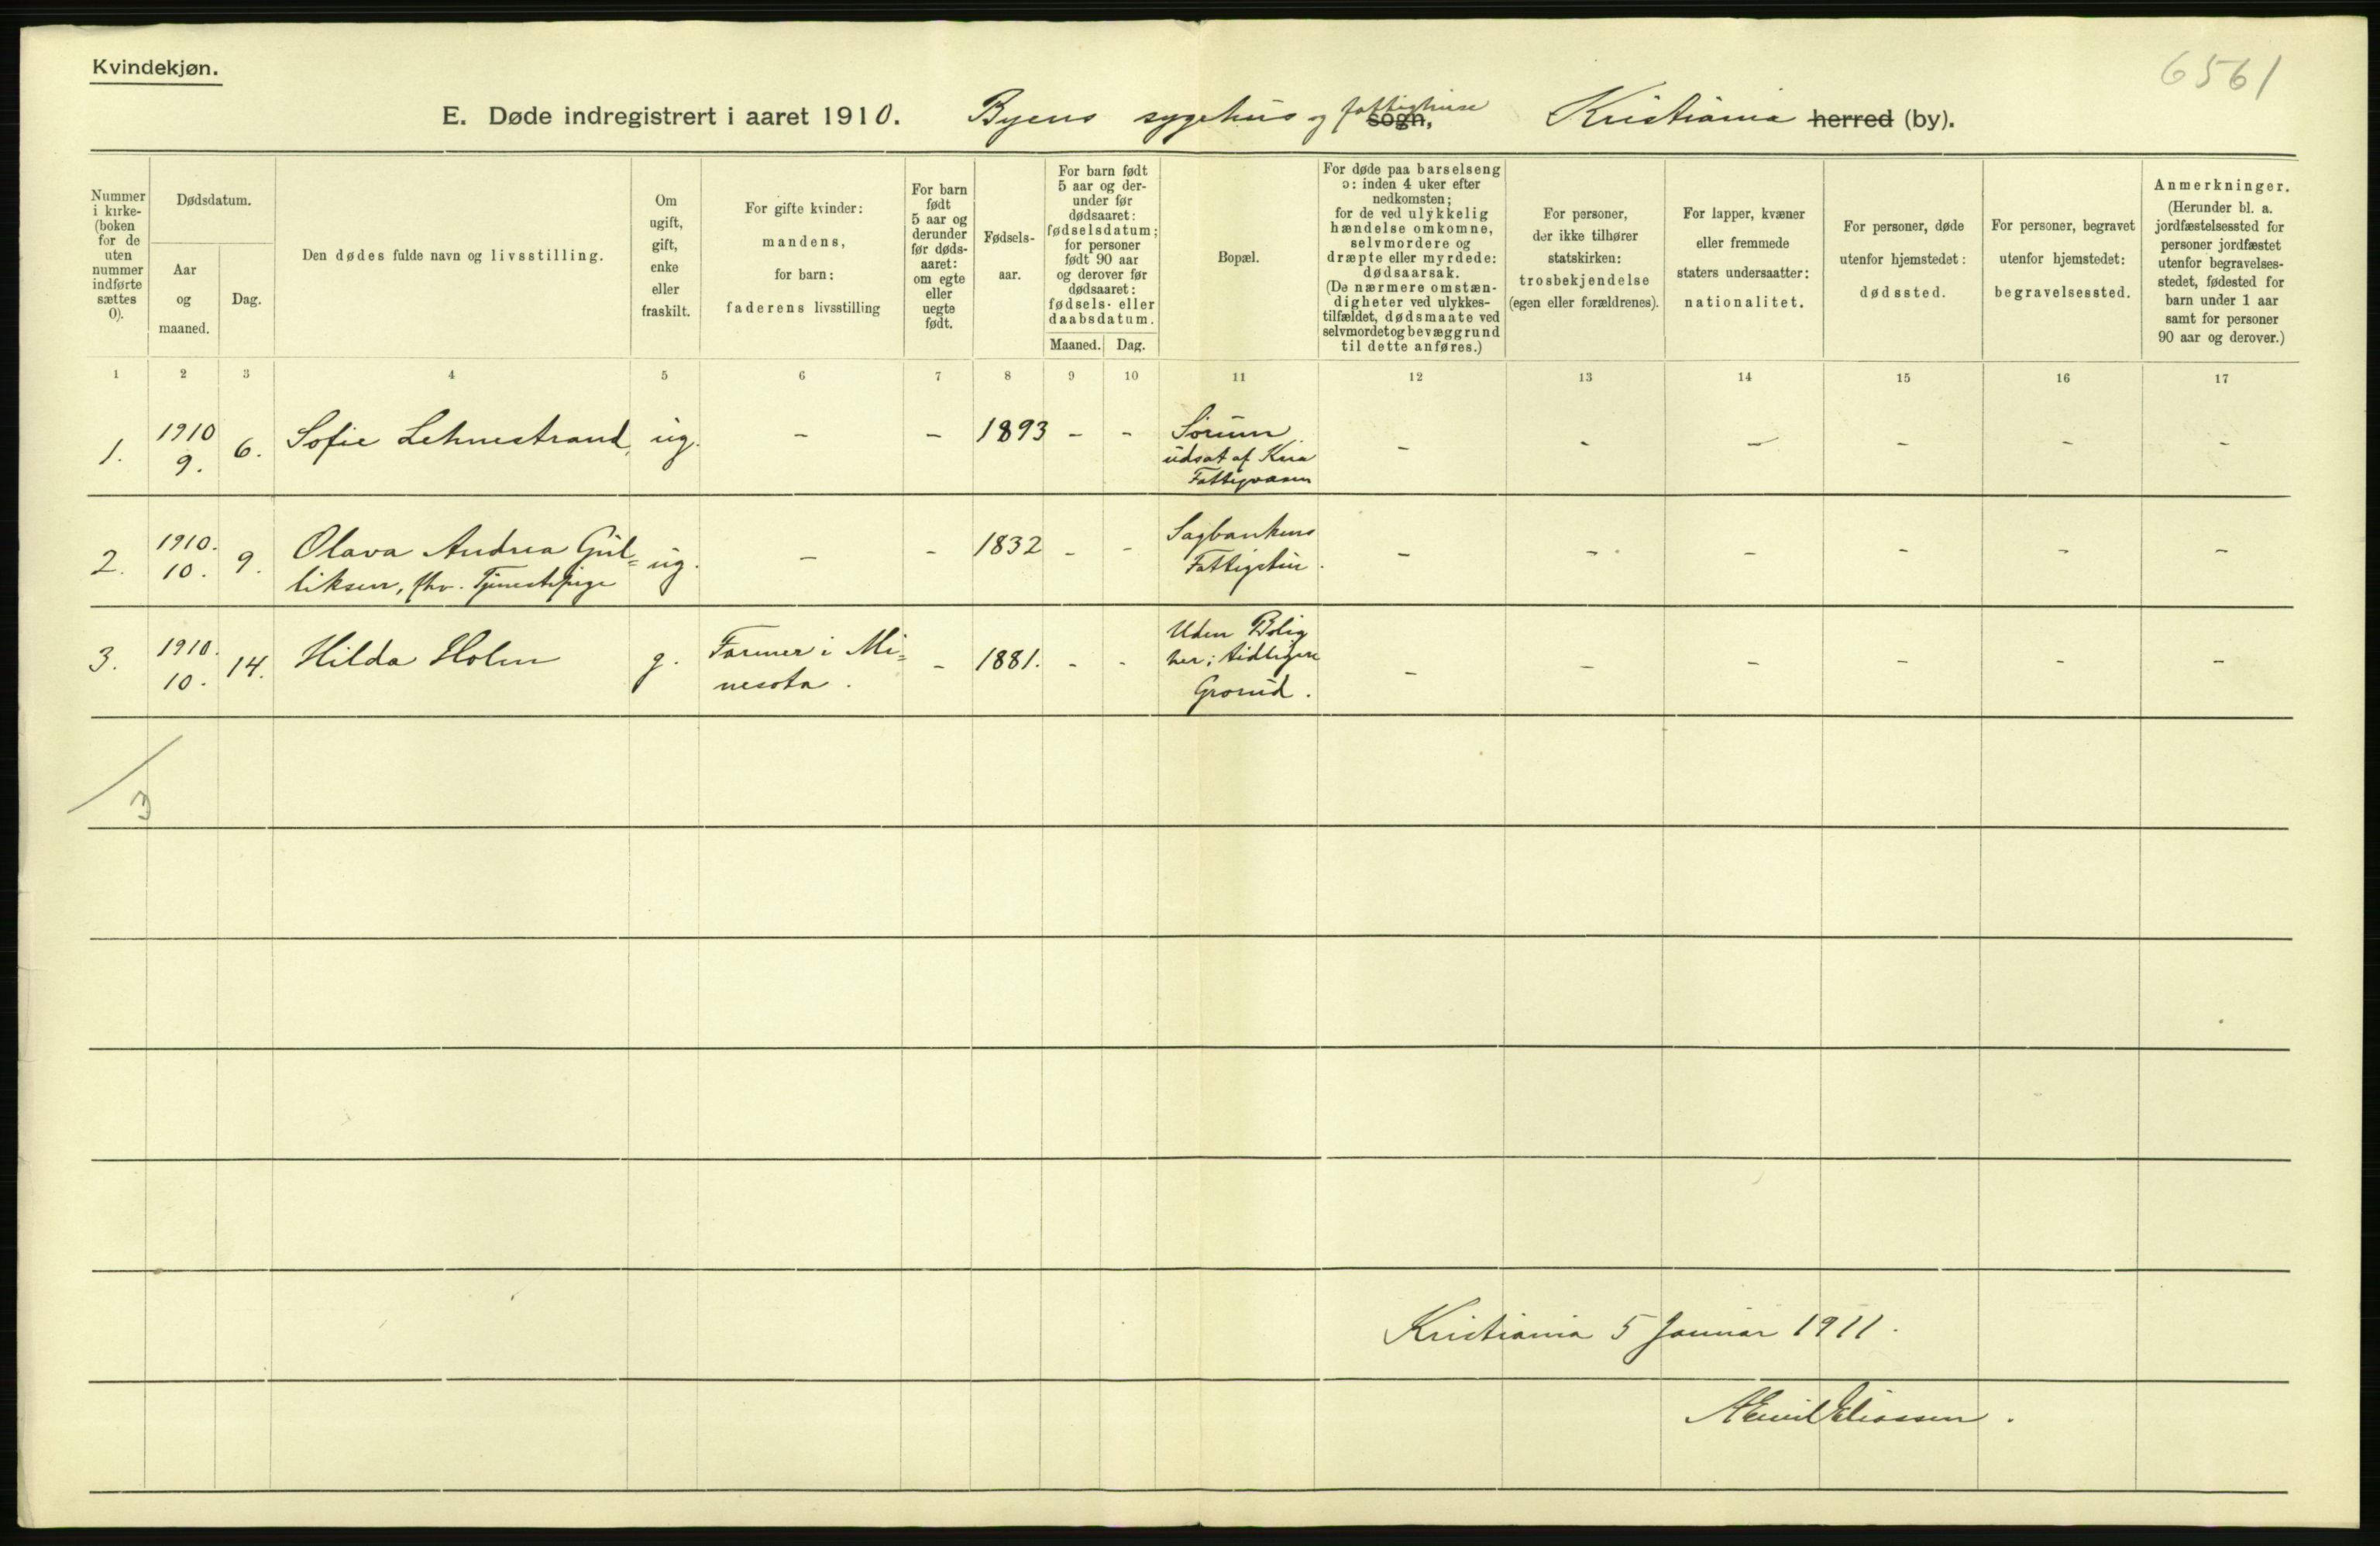 Kvindekjøn.
6561
E. Døde indregistrert i aaret 1910. Byens sygehus og fattighuse sogn, Kristiania herred (by).
Nummer i kirke-(boken for de uten nummer indførte sættes 0).
Dødsdatum.
Aar og maaned.
Dag.
Den dødes fulde navn og livsstilling.
Om ugift, gift, enke eller fraskilt.
For gifte kvinder: mandens, for barn: faderens livsstilling
For barn født 5 aar og derunder før døds-aaret: om egte eller uegte født.
Fødsels-aar.
For barn født 5 aar og der-under før dødsaaret: fødselsdatum; for personer født 90 aar og derover før dødsaaret: fødsels- eller daabsdatum.
Maaned. Dag.
Bopæl.
For døde paa barselseng ɔ: inden 4 uker efter nedkomsten; for de ved ulykkelig hændelse omkomne, selvmordere og dræpte eller myrdede: dødsaarsak. (De nærmere omstæn-digheter ved ulykkes-tilfældet, dødsmaate ved selvmordet og bevæggrund til dette anføres.)
For personer, der ikke tilhører statskirken: trosbekjendelse (egen eller forældrenes).
For lapper, kvæner eller fremmede staters undersaatter: nationalitet.
For personer, døde utenfor hjemstedet: dødssted.
For personer, begravet utenfor hjemstedet: begravelsessted.
Anmerkninger. (Herunder bl. a. jordfæstelsessted for personer jordfæstet utenfor begravelses-stedet, fødested for barn under 1 aar samt for personer 90 aar og derover.)
1 2 3 4 5 6 7 8 9 10 11 12 13 14 15 16 17
1. 1910 9. 6. Sofie Lehnestrand, ug. – – 1893 – – Sørum udsat af Kria Fattigvæsen – – – – – –
2. 1910. 10. 9. Olava Andrea Gul=liksen, fhv. Tjenestepige ug. – – 1832 – – Sagbankens Fattigstue. – – – – – –
3. 1910. 10. 14. Hilda Holm g. Farmer i Mi=nesota. – 1881. – – Uden Bolig her; tidligere Grorud. – – – – – –
3
Kristiania 5 Januar 1911.
AEmil Eliassen.